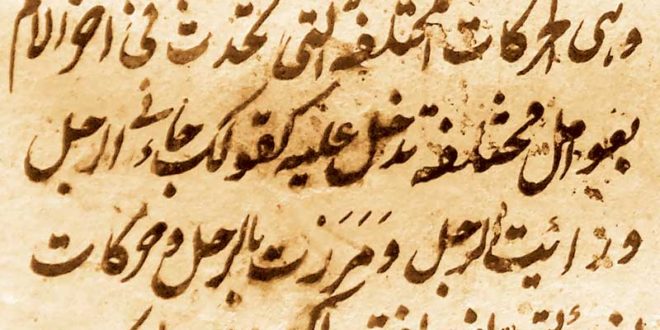 وهي الحركات المختلفة التي تحدث في اخر الاسم
بعوامل مختلفة تدخل عليه كقولك جاءني الرجل
ورائيت الرجل ومَرَرْت بالرجل وحركات